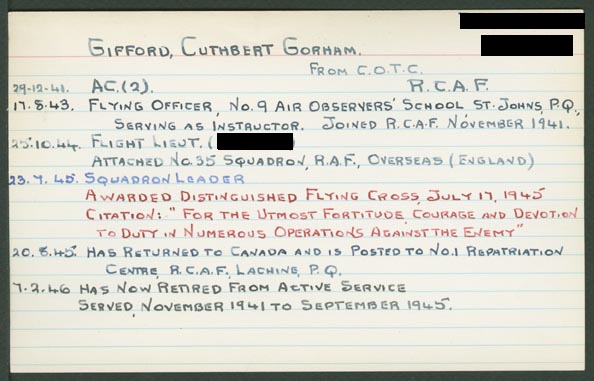 GIFFORD, CUTHBERT GORHAM.
FROM C.O.T.C.
29-12-41. AC.(2). R.C.A.F.
17.8.43. FLYING OFFICER, NO.9 AIR OBSERVERS' SCHOOL ST. JOHNS, P.Q.,
SERVING AS INSTRUCTOR. JOINED R.C.A.F. NOVEMBER 1941.
25.10.44. FLIGHT LIEUT. (
ATTACHED NO.35 SQUADRON, R.A.F., OVERSEAS (ENGLAND)
23.7.45. SQUADRON LEADER
AWARDED DISTINGUISHED FLYING CROSS, JULY 17, 1945
CITATION: "FOR THE UTMOST FORTITUDE, COURAGE AND DEVOTION
TO DUTY IN NUMEROUS OPERATIONS AGAINST THE ENEMY"
20.8.45. HAS RETURNED TO CANADA AND IS POSTED TO NO.1 REPATRIATION
CENTRE, R.C.A.F., LACHINE, P.Q.
7.2.46 HAS NOW RETIRED FROM ACTIVE SERVICE
SERVED, NOVEMBER 1941 TO SEPTEMBER 1945.